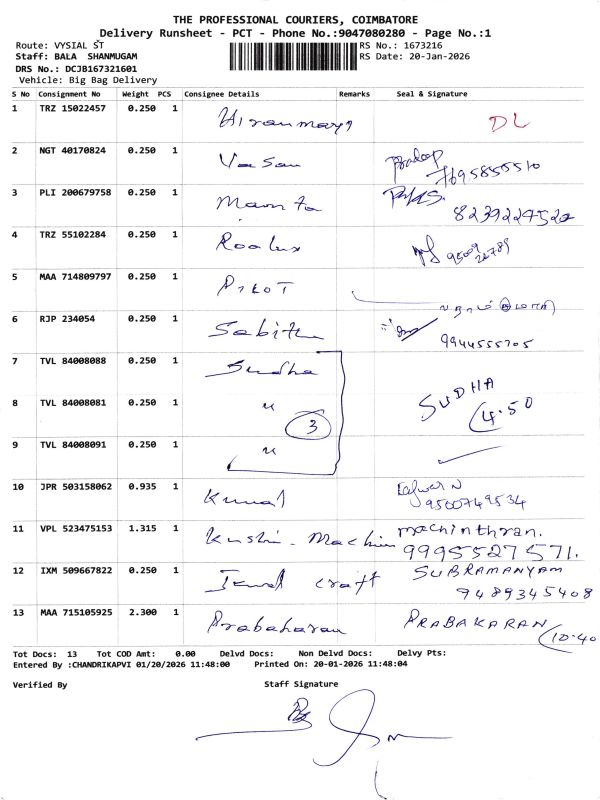 THE PROFESSIONAL COURIERS, COIMBATORE
Delivery Runsheet - PCT - Phone No.:9047080280 - Page No.:1
Route: VYSIAL ST RS No.: 1673216
Staff: BALA SHANMUGAM RS Date: 20-Jan-2026
DRS No.: DCJB167321601
Vehicle: Big Bag Delivery
S No Consignment No Weight PCS Consignee Details Remarks Seal & Signature
1 TRZ 15022457 0.250 1 DL
2 NGT 40170824 0.250 1 Vasan Pradeep
3 PLI 200679758 0.250 1 Mamta
8239224522
4 TRZ 55102284 0.250 1
5 MAA 714809797 0.250 1 PILOT
6 RJP 234054 0.250 1 Sabitu
9944555705
7 TVL 84008088 0.250 1 Sudha
8 TVL 84008081 0.250 1 " 3 SUDHA 4.50
9 TVL 84008091 0.250 1 "
10 JPR 503158062 0.935 1 Kunal
9500749534
11 VPL 523475153 1.315 1 machinthran.
9995527571.
12 IXM 509667822 0.250 1 craft SUBRAMANYAM
9489345408
13 MAA 715105925 2.300 1 Prabaharan PRABAKARAN 10.40
Tot Docs: 13 Tot COD Amt: 0.00 Delvd Docs: Non Delvd Docs: Delvy Pts:
Entered By :CHANDRIKAPVI 01/20/2026 11:48:00 Printed On: 20-01-2026 11:48:04
Verified By Staff Signature